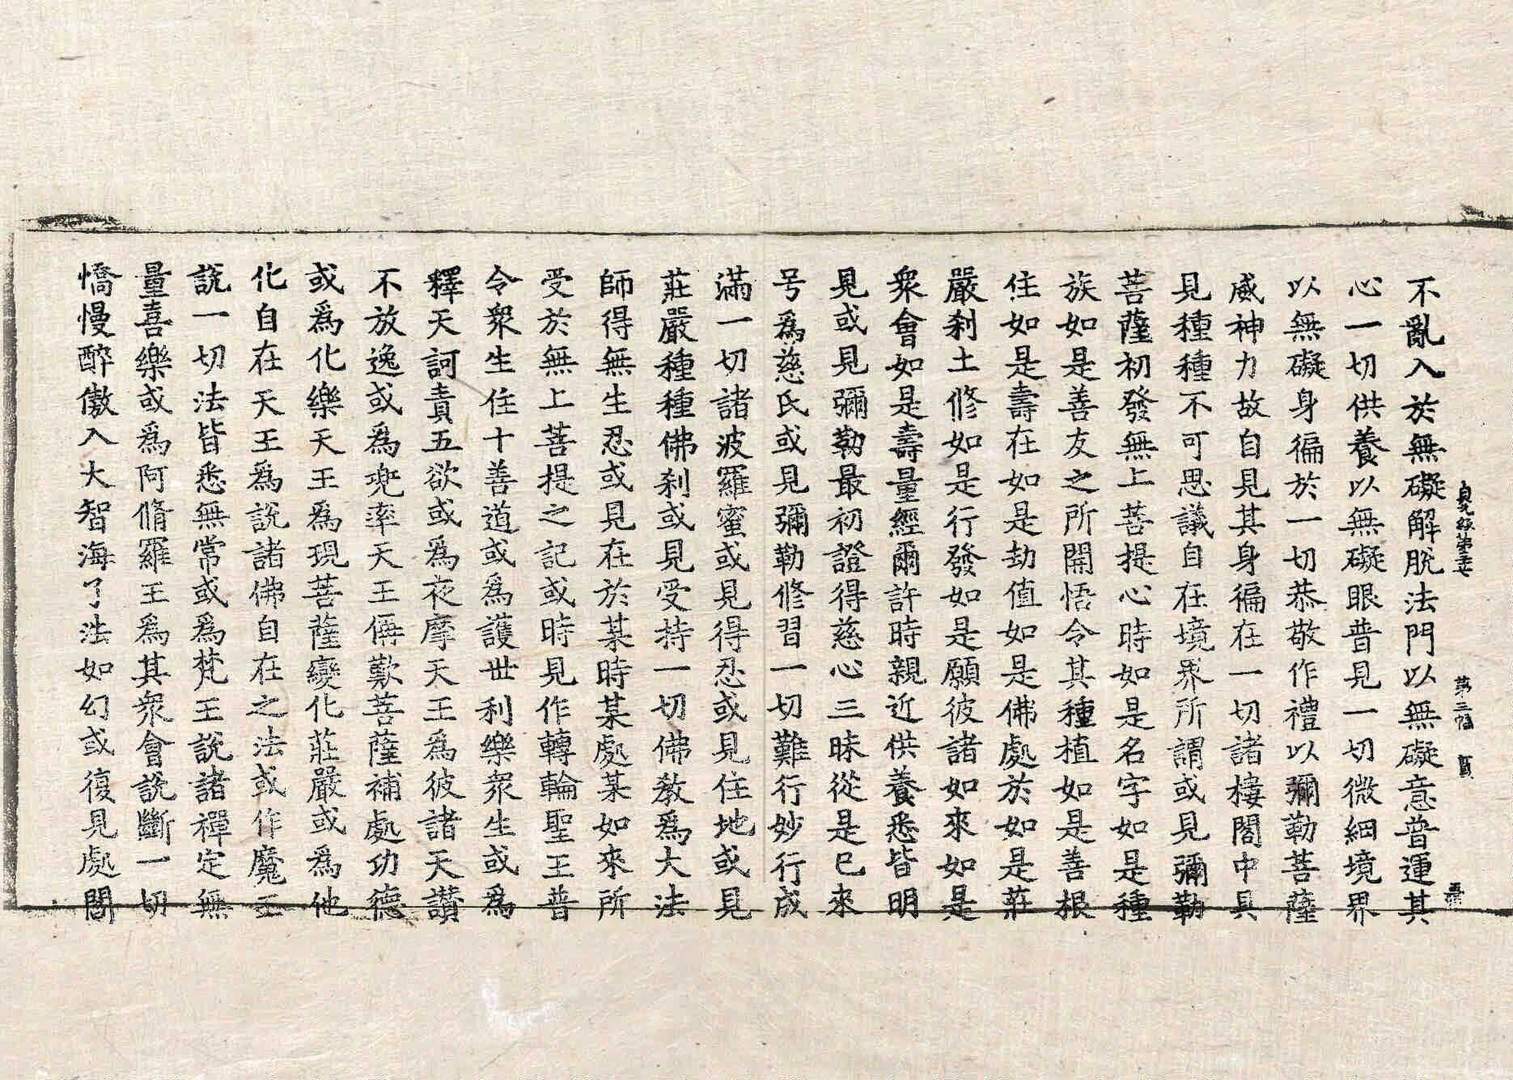 不亂入於無礙解脫法門以無礙意普運其
心一切供養以無礙眼普見一切微細境界
以無礙身徧於一切恭敬作禮以彌勒菩薩
威神力故自見其身徧在一切諸樓閣中具
見種種不可思議自在境界所謂或見彌勒
菩薩初發無上菩提心時如是名字如是種
族如是善友之所開悟令其種植如是善根
住如是壽在如是劫值如是佛處於如是莊
嚴刹土修如是行發如是願彼諸如來如是
衆會如是壽量經爾許時親近供養悉皆明
見或見彌勒最初證得慈心三昧從是已來
号爲慈氏或見彌勒修習一切難行妙行成
滿一切諸波羅蜜或見得忍或見住地或見
莊嚴種種佛刹或見受持一切佛教爲大法
師得無生忍或見在於某時某處某如來所
受於無上菩提之記或時見作轉輪聖王普
令衆生住十善道或爲護世利樂衆生或爲
釋天訶責五欲或爲夜摩天王爲彼諸天讚
不放逸或爲兜率天王俻歎菩薩補處功德
或爲化樂天王爲現菩薩變化莊嚴或爲他
化自在天王爲說諸佛自在之法或作魔王
說一切法皆悉無常或爲梵王說諸禪定無
量喜樂或爲阿脩羅王爲其衆會說斷一切
憍慢醉傲入大智海了法如幻或復見處閻